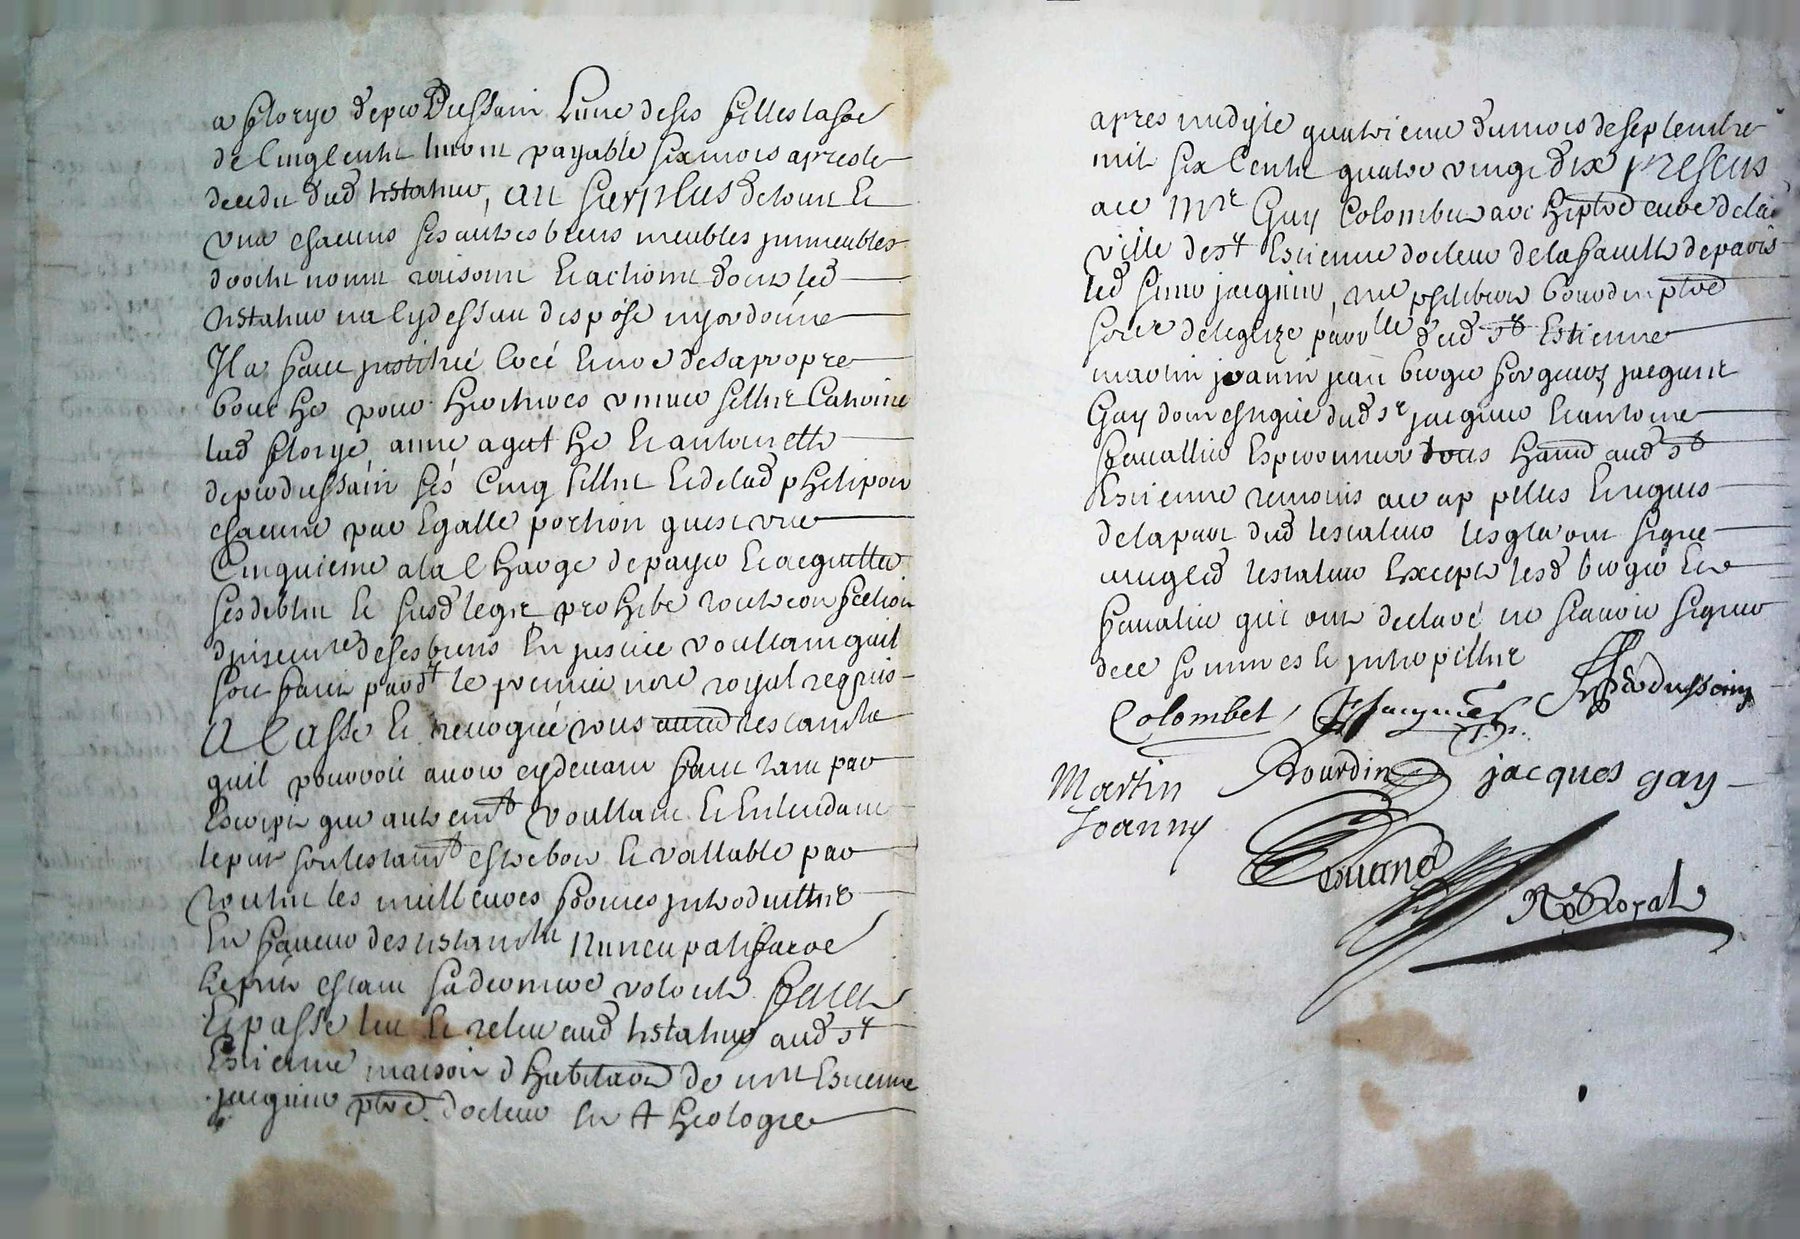 a florye depiodussain Lune desés filles la soe
de Cinq Centz livres payable six mois apres le
decedz dud testateur, au surplus de tous et
un chacuns ses autres biens meubles immeubles
droitz noms raisons et actions dont led
testateur na cy dessus disposé ny ordonne
Il a faict institué Creé et nome de sa propre
bouche pour heritieres
lad florye, anne agathe et antoinette
depiodussain ses Cinq filles et de lad phelipon
chacune par Egalle portion quest une
Cinquieme a la Charge de payer et acquitter
ses debtes et susd legtz prohibe toute confection
dinventre de ses biens En justice voullant quil
soit faict pardt le premier nore royal requis
A Cassé et revoqué tous autres testamte
quil pourroit avoir cydevant faict tant par
Escript que autremt voullant et Entendant
le pnt son testamt estre bon et vallable par
toutes les meilleures formes introduittes
En faveur des testamte Nuncupatif car
le pnt estant sa derniere volonte faict
et passe leu et releu aud testateur aud st
Estienne maison dhabitaon de mre Estienne
jacquier ptre docteur En theologie
apres midy le quatrieme du mois de septembre
mil six Centz quatre vingt dix presens
ace Mre Guy Colombet aussi ptre et curé de la
ville de st Estienne docteur de la faculte de paris
led sieur jacquier, mre bourdin ptre
soer de leglize parrlle dud st Estienne
martin joanin jean brogio forgeurs jacques
Gay domestique dud sr jacquier et antoine
favallier Esperonnier tous habid aud st
Estienne temoins ace appelles et requis
de la part dud testateur lesqlz ont signe
avecq led testateur Excepte lesd brogio et
favalier qui ont declaré ne scavoir signer
dece sommes et interpelles
Colombet Jacquier depiodussain
Martin Bourdin jacques gay
Joanny
Nore Royal